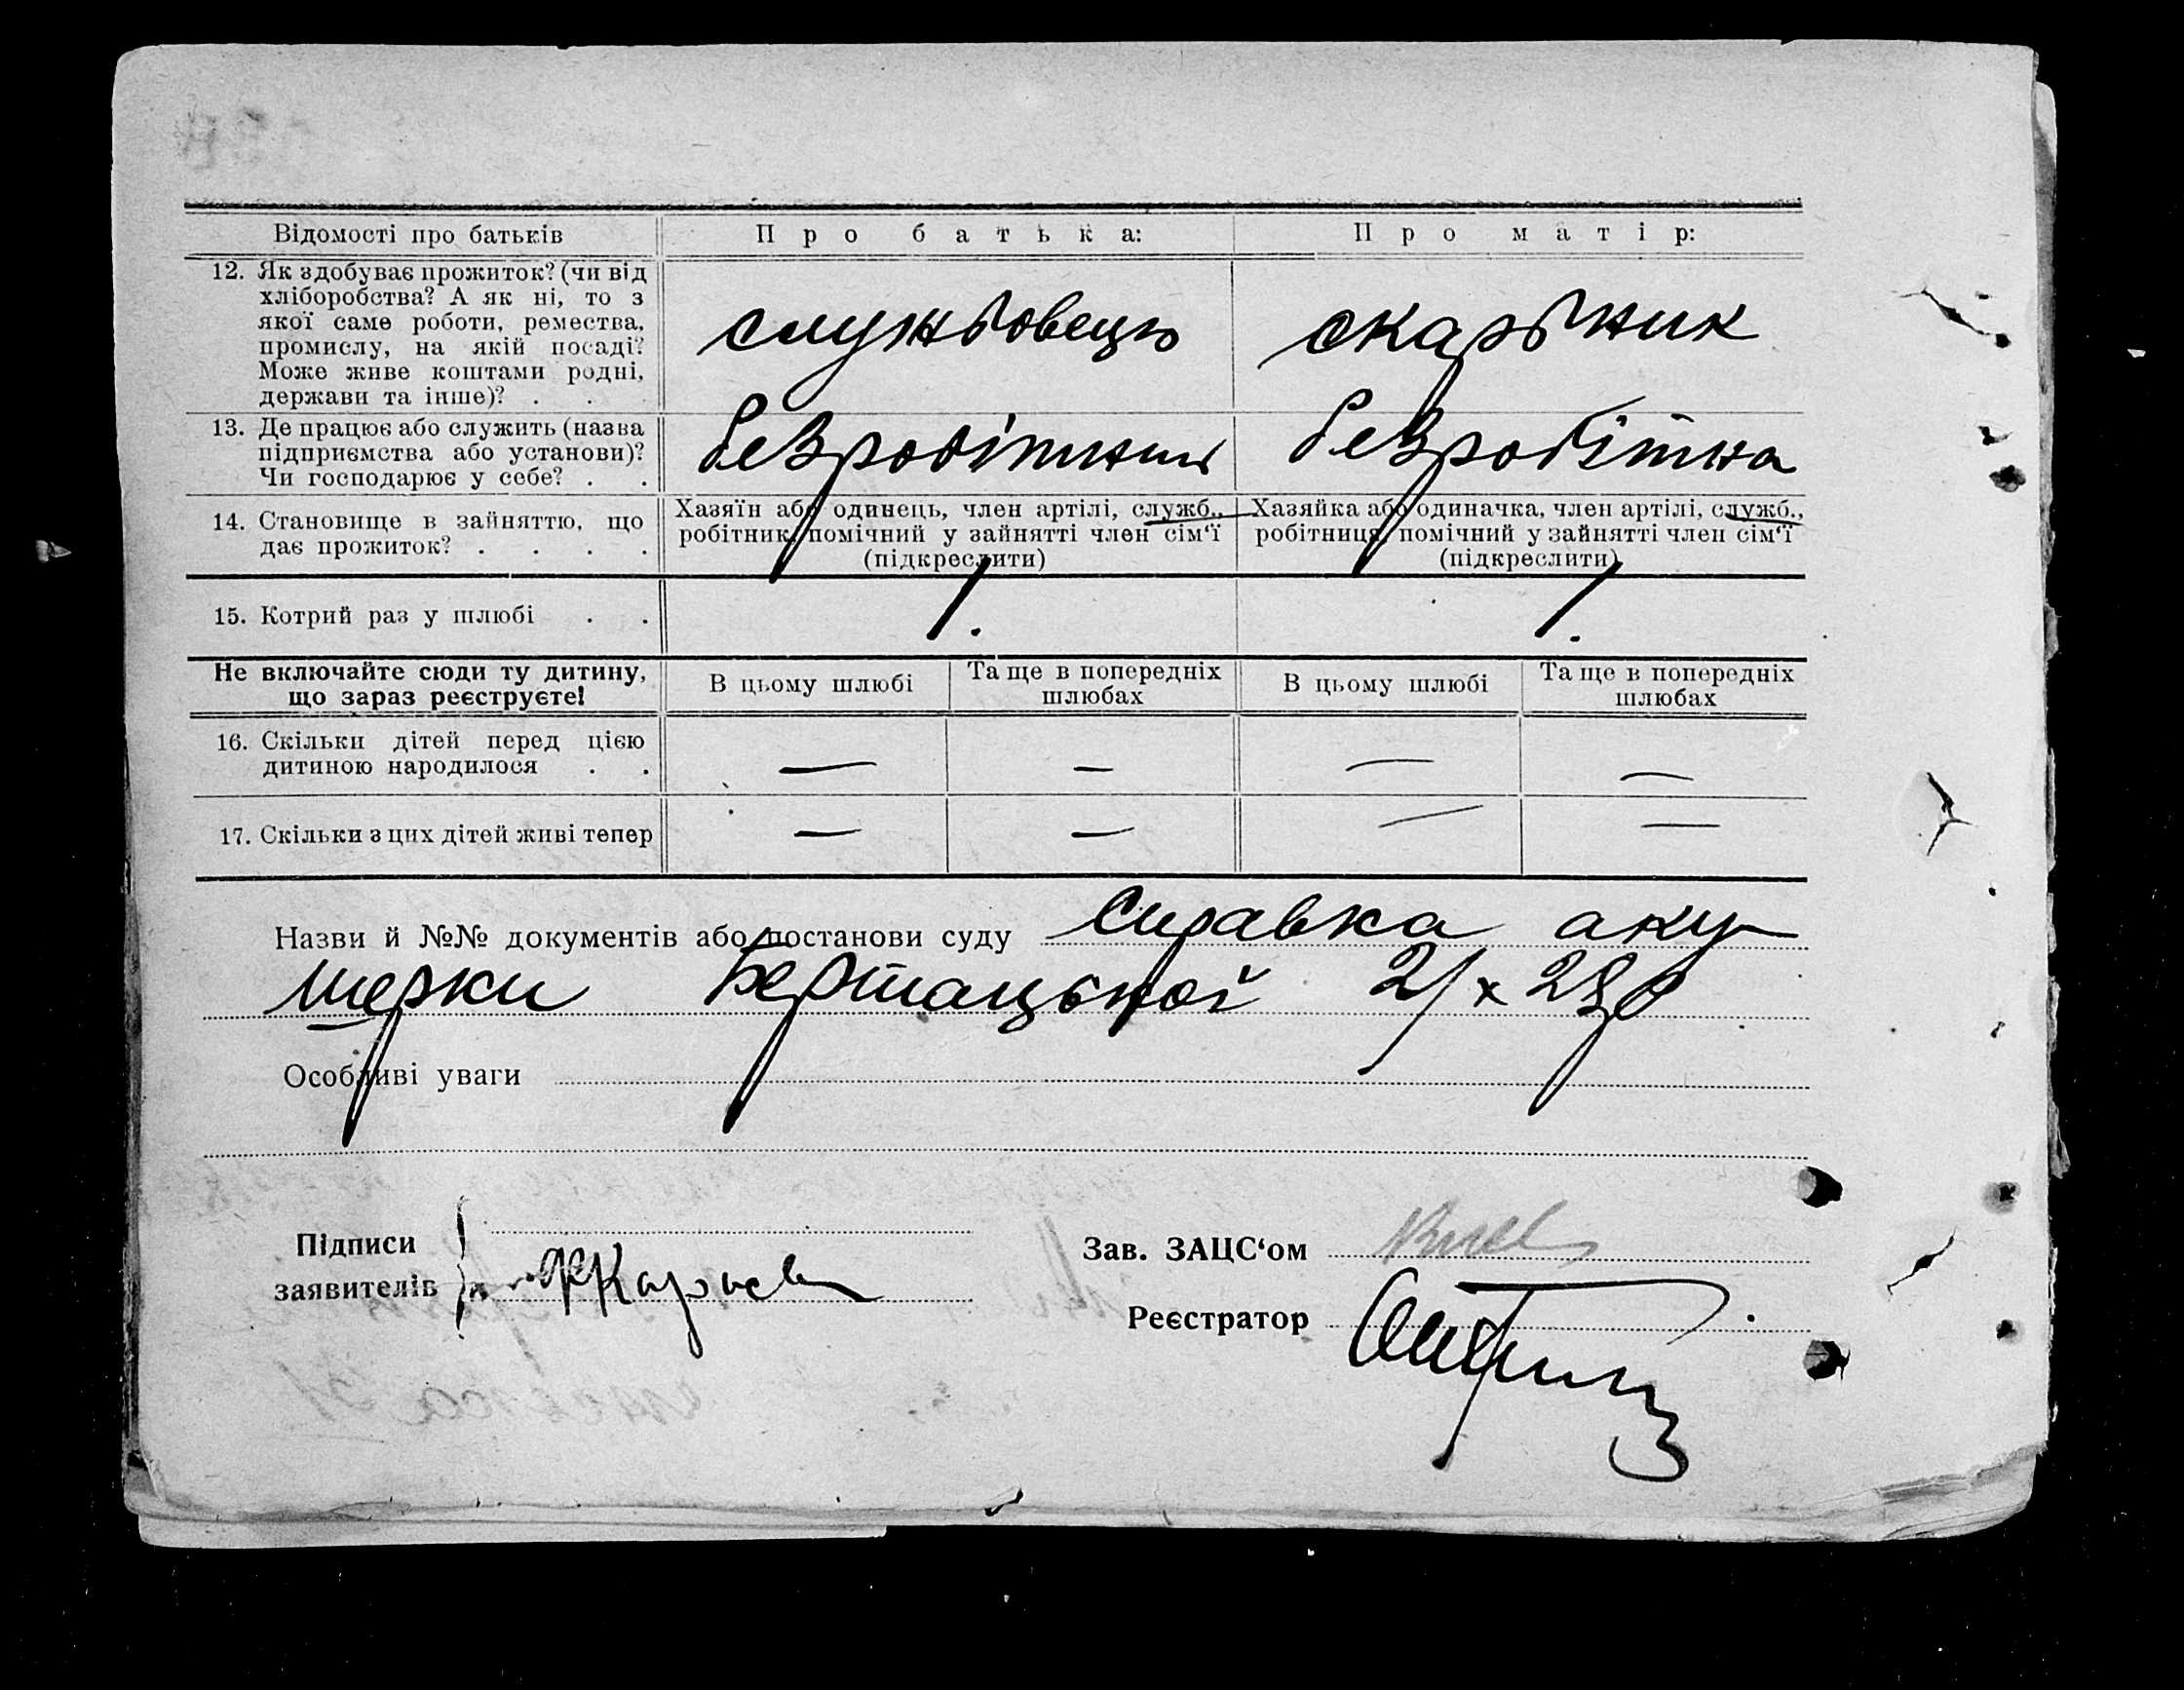 Відомості про батьків
Про батька:
Про матір:
12. Як здобуває прожиток? (чи від
хліборобства? А як ні, то з
якої саме роботи, ремества,
промислу, на якій посаді?
Може живе коштами родні,
держави та інше)? . .
службовець
скарбник
13. Де працює або служить (назва
підприємства або установи)?
Чи господарює у себе? . .
безробітний
безробітна
14. Становище в зайняттю, що
дає прожиток? . . . .
Хазяїн або одинець, член артілі, служб.,
робітник, помічний у зайнятті член сім‘ї
(підкреслити)
Хазяйка або одиначка, член артілі, служб.,
робітниця, помічний у зайнятті член сім‘ї
(підкреслити)
15. Котрий раз у шлюбі . .
1.
1.
Не включайте сюди ту дитину,
що зараз реєструєте!
В цьому шлюбі
Та ще в попередніх
шлюбах
В цьому шлюбі
Та ще в попередніх
шлюбах
16. Скільки дітей перед цією
дитиною народилося . .
— — — —
17. Скільки з цих дітей живі тепер
— — — —
Назви й №№ документів або постанови суду Справка аку-
шерки
Особливі уваги
Підписи
заявителів
Зав. ЗАЦС‘ом
Реєстратор